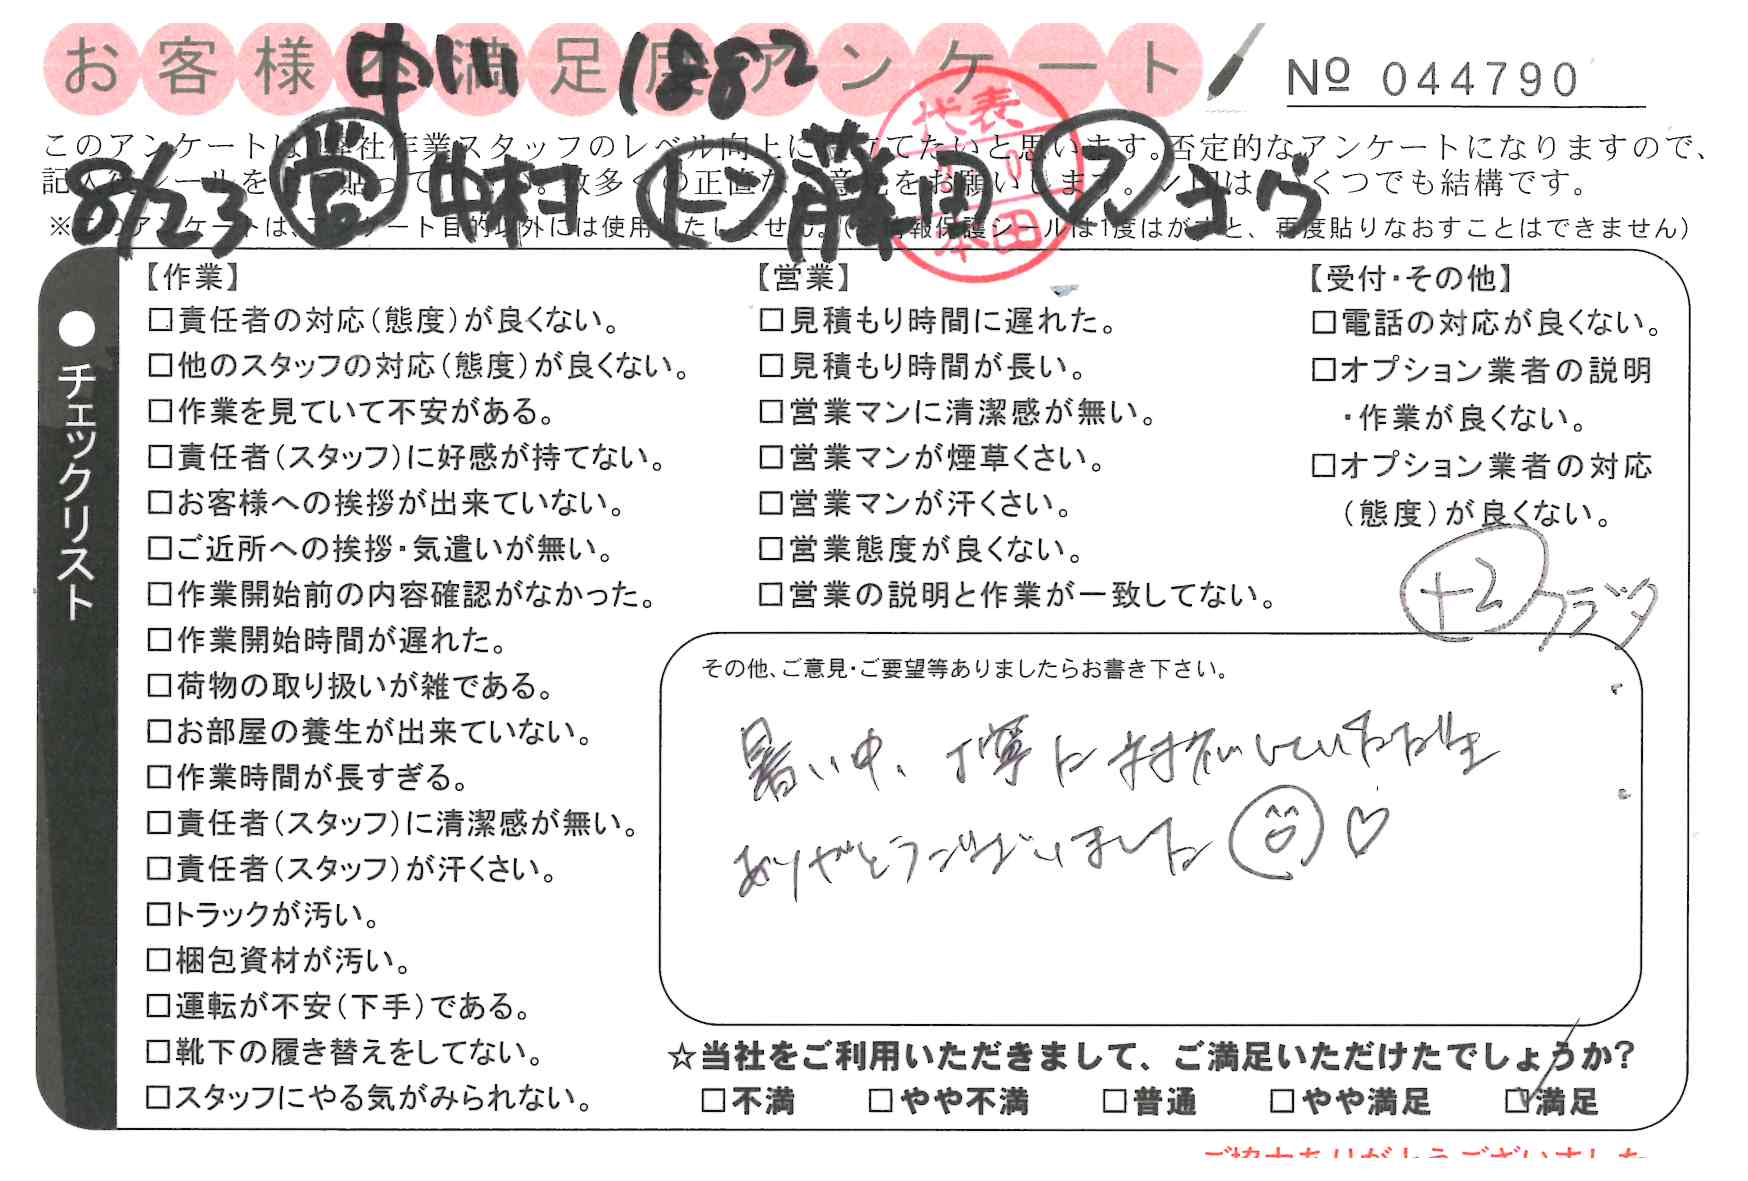 お客様不満足度アンケート
中川 1882
No 044790
このアンケートは、弊社作業スタッフのレベル向上に役立てたいと思います。否定的なアンケートになりますので、
記入後シールを上に貼って下さい。数多くの正直なご意見をお願いします。レ印はいくつでも結構です。
※このアンケートは、アンケート目的以外には使用いたしません。(個人情報保護シールは1度はがすと、再度貼りなおすことはできません)
8/23 営 中村 ト 藤田 ア
代表
本田
●チェックリスト
【作業】
□責任者の対応(態度)が良くない。
□他のスタッフの対応(態度)が良くない。
□作業を見ていて不安がある。
□責任者(スタッフ)に好感が持てない。
□お客様への挨拶が出来ていない。
□ご近所への挨拶・気遣いが無い。
□作業開始前の内容確認がなかった。
□作業開始時間が遅れた。
□荷物の取り扱いが雑である。
□お部屋の養生が出来ていない。
□作業時間が長すぎる。
□責任者(スタッフ)に清潔感が無い。
□責任者(スタッフ)が汗くさい。
□トラックが汚い。
□梱包資材が汚い。
□運転が不安(下手)である。
□靴下の履き替えをしてない。
□スタッフにやる気がみられない。
【営業】
□見積もり時間に遅れた。
□見積もり時間が長い。
□営業マンに清潔感が無い。
□営業マンが煙草くさい。
□営業マンが汗くさい。
□営業態度が良くない。
□営業の説明と作業が一致してない。
【受付・その他】
□電話の対応が良くない。
□オプション業者の説明
・作業が良くない。
□オプション業者の対応
(態度)が良くない。
+2
その他、ご意見・ご要望等ありましたらお書き下さい。
暑い中、丁寧に対応していただき
ありがとうございました
☆当社をご利用いただきまして、ご満足いただけたでしょうか?
□不満 □やや不満 □普通 □やや満足 ☑満足
ご協力ありがとうございました